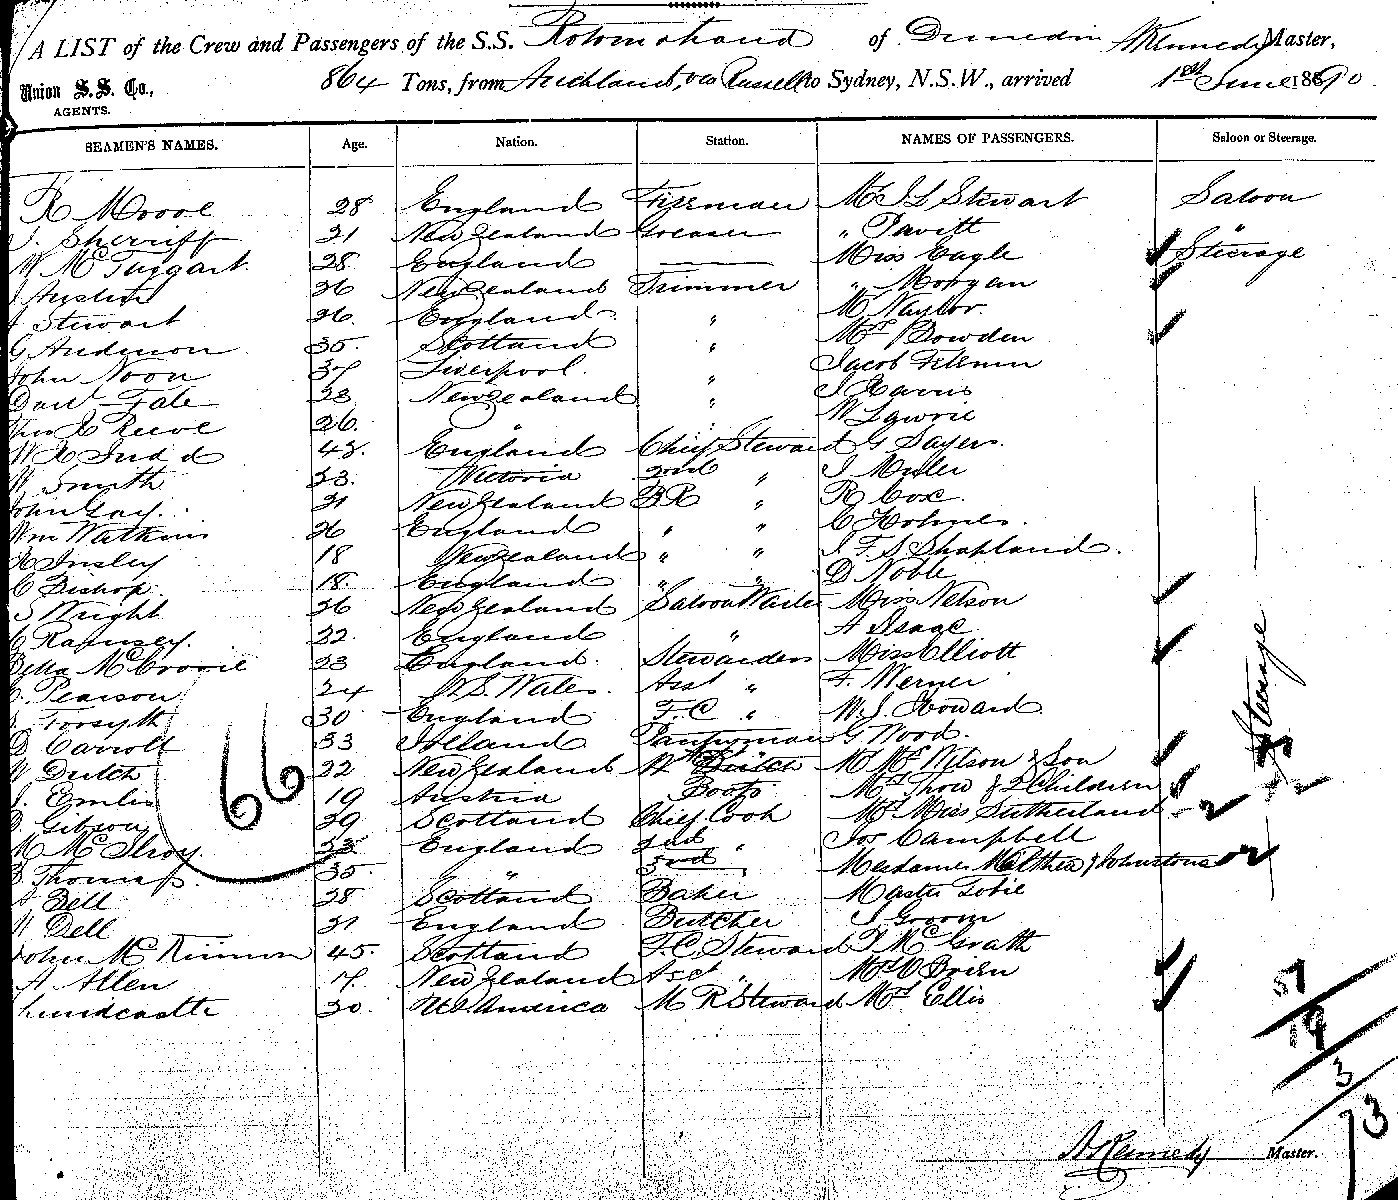 A LIST of the Crew and Passengers of the S.S. Rotomahana of Dunedin A Kennedy Master,
Union S.S. Co., AGENTS. 864 Tons, from Auckland, via Russell to Sydney, N.S.W., arrived 1st June 1890
SEAMEN'S NAMES. Age. Nation. Station. NAMES OF PASSENGERS. Saloon or Steerage.
R Moore 28 England Fireman Mr J L Stewart Saloon
J. Sherriff 21 New Zealand Greaser " Pavitt "
W McTaggart 28 England Miss Cagle Steerage
Austin 26 New Zealand Trimmer " Morgan
Stewart 26 England " M Naylor
G Anderson 35 Scotland " Mrs Bowden
John Noon 37 Liverpool " Jacob
Tate 23 New Zealand " J Harris
Reeve 26 " W Lawrie
W 43 England Chief Steward G Sayers
W Smith 23 Victoria 2nd " J
John Gay 21 New Zealand BR " R Cox
Wm Watkins 26 England " " C Holmes
H Insley 18 New Zealand " " J F S Shapland
C Bishop 18 England " " D Noble
S Wright 26 New Zealand Saloon Waiter Miss Nelson
Ramsey 22 England " A Isaac
Bella McCrorie 23 England Stewardess Miss Elliott
Pearson 24 N.S. Wales Asst " F. Werner
Forsyth 30 England F.C " W. J. Howard
D Carroll 33 Pantryman G Wood
W Dutch 22 New Zealand Mr Mrs Nelson & Son
J. 19 Austria Boots Mrs Thow & 2 Children
Gibson 29 Scotland Chief Cook Mrs Miss Sutherland 2
M McIlroy 23 England 2nd " Jos Campbell
Thomas 35 " 3rd " Madames & Johnstone 2
A Bell 28 Scotland Baker Master
W Bell 21 England Butcher J Groom
John McKinnon 45 Scotland F.C. Steward P McGrath
A Allen 17 New Zealand Asst " Mrs O'Brien
30 U.S. America M R Steward Mrs Ellis
66
Steerage
51
19
3
73
A Kennedy Master.